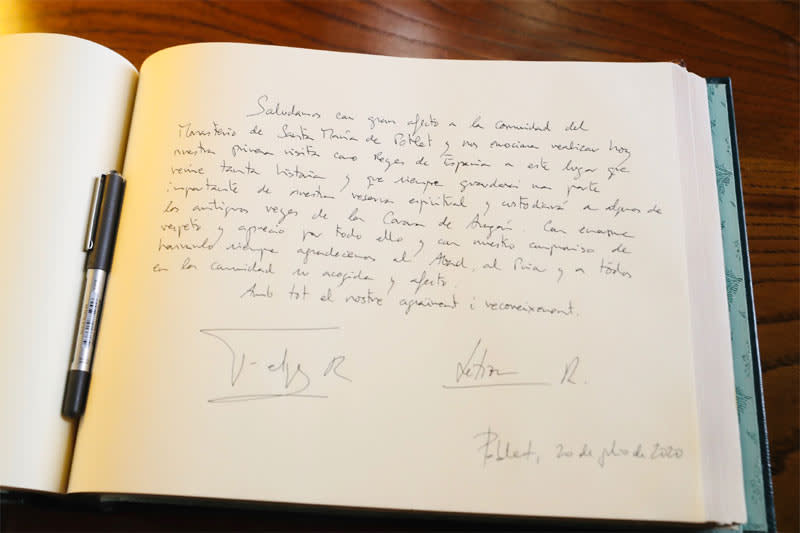 Saludamos con gran afecto a la comunidad del
Monasterio de Santa María de Poblet y nos emociona realizar hoy
nuestra primera visita como Reyes de España a este lugar que
reúne tanta historia y que siempre guardará una parte
importante de nuestra reserva espiritual y custodiará a algunos de
los antiguos reyes de la Corona de Aragón. Con enorme
respeto y aprecio por todo ello y con nuestro compromiso de
honrarlo siempre agradecemos al Abad, al Prior y a todos
en la comunidad su acogida y afecto.
Amb tot el nostre agraïment i reconeixement.
Felipe R
Letizia R.
Poblet, 20 de julio de 2020